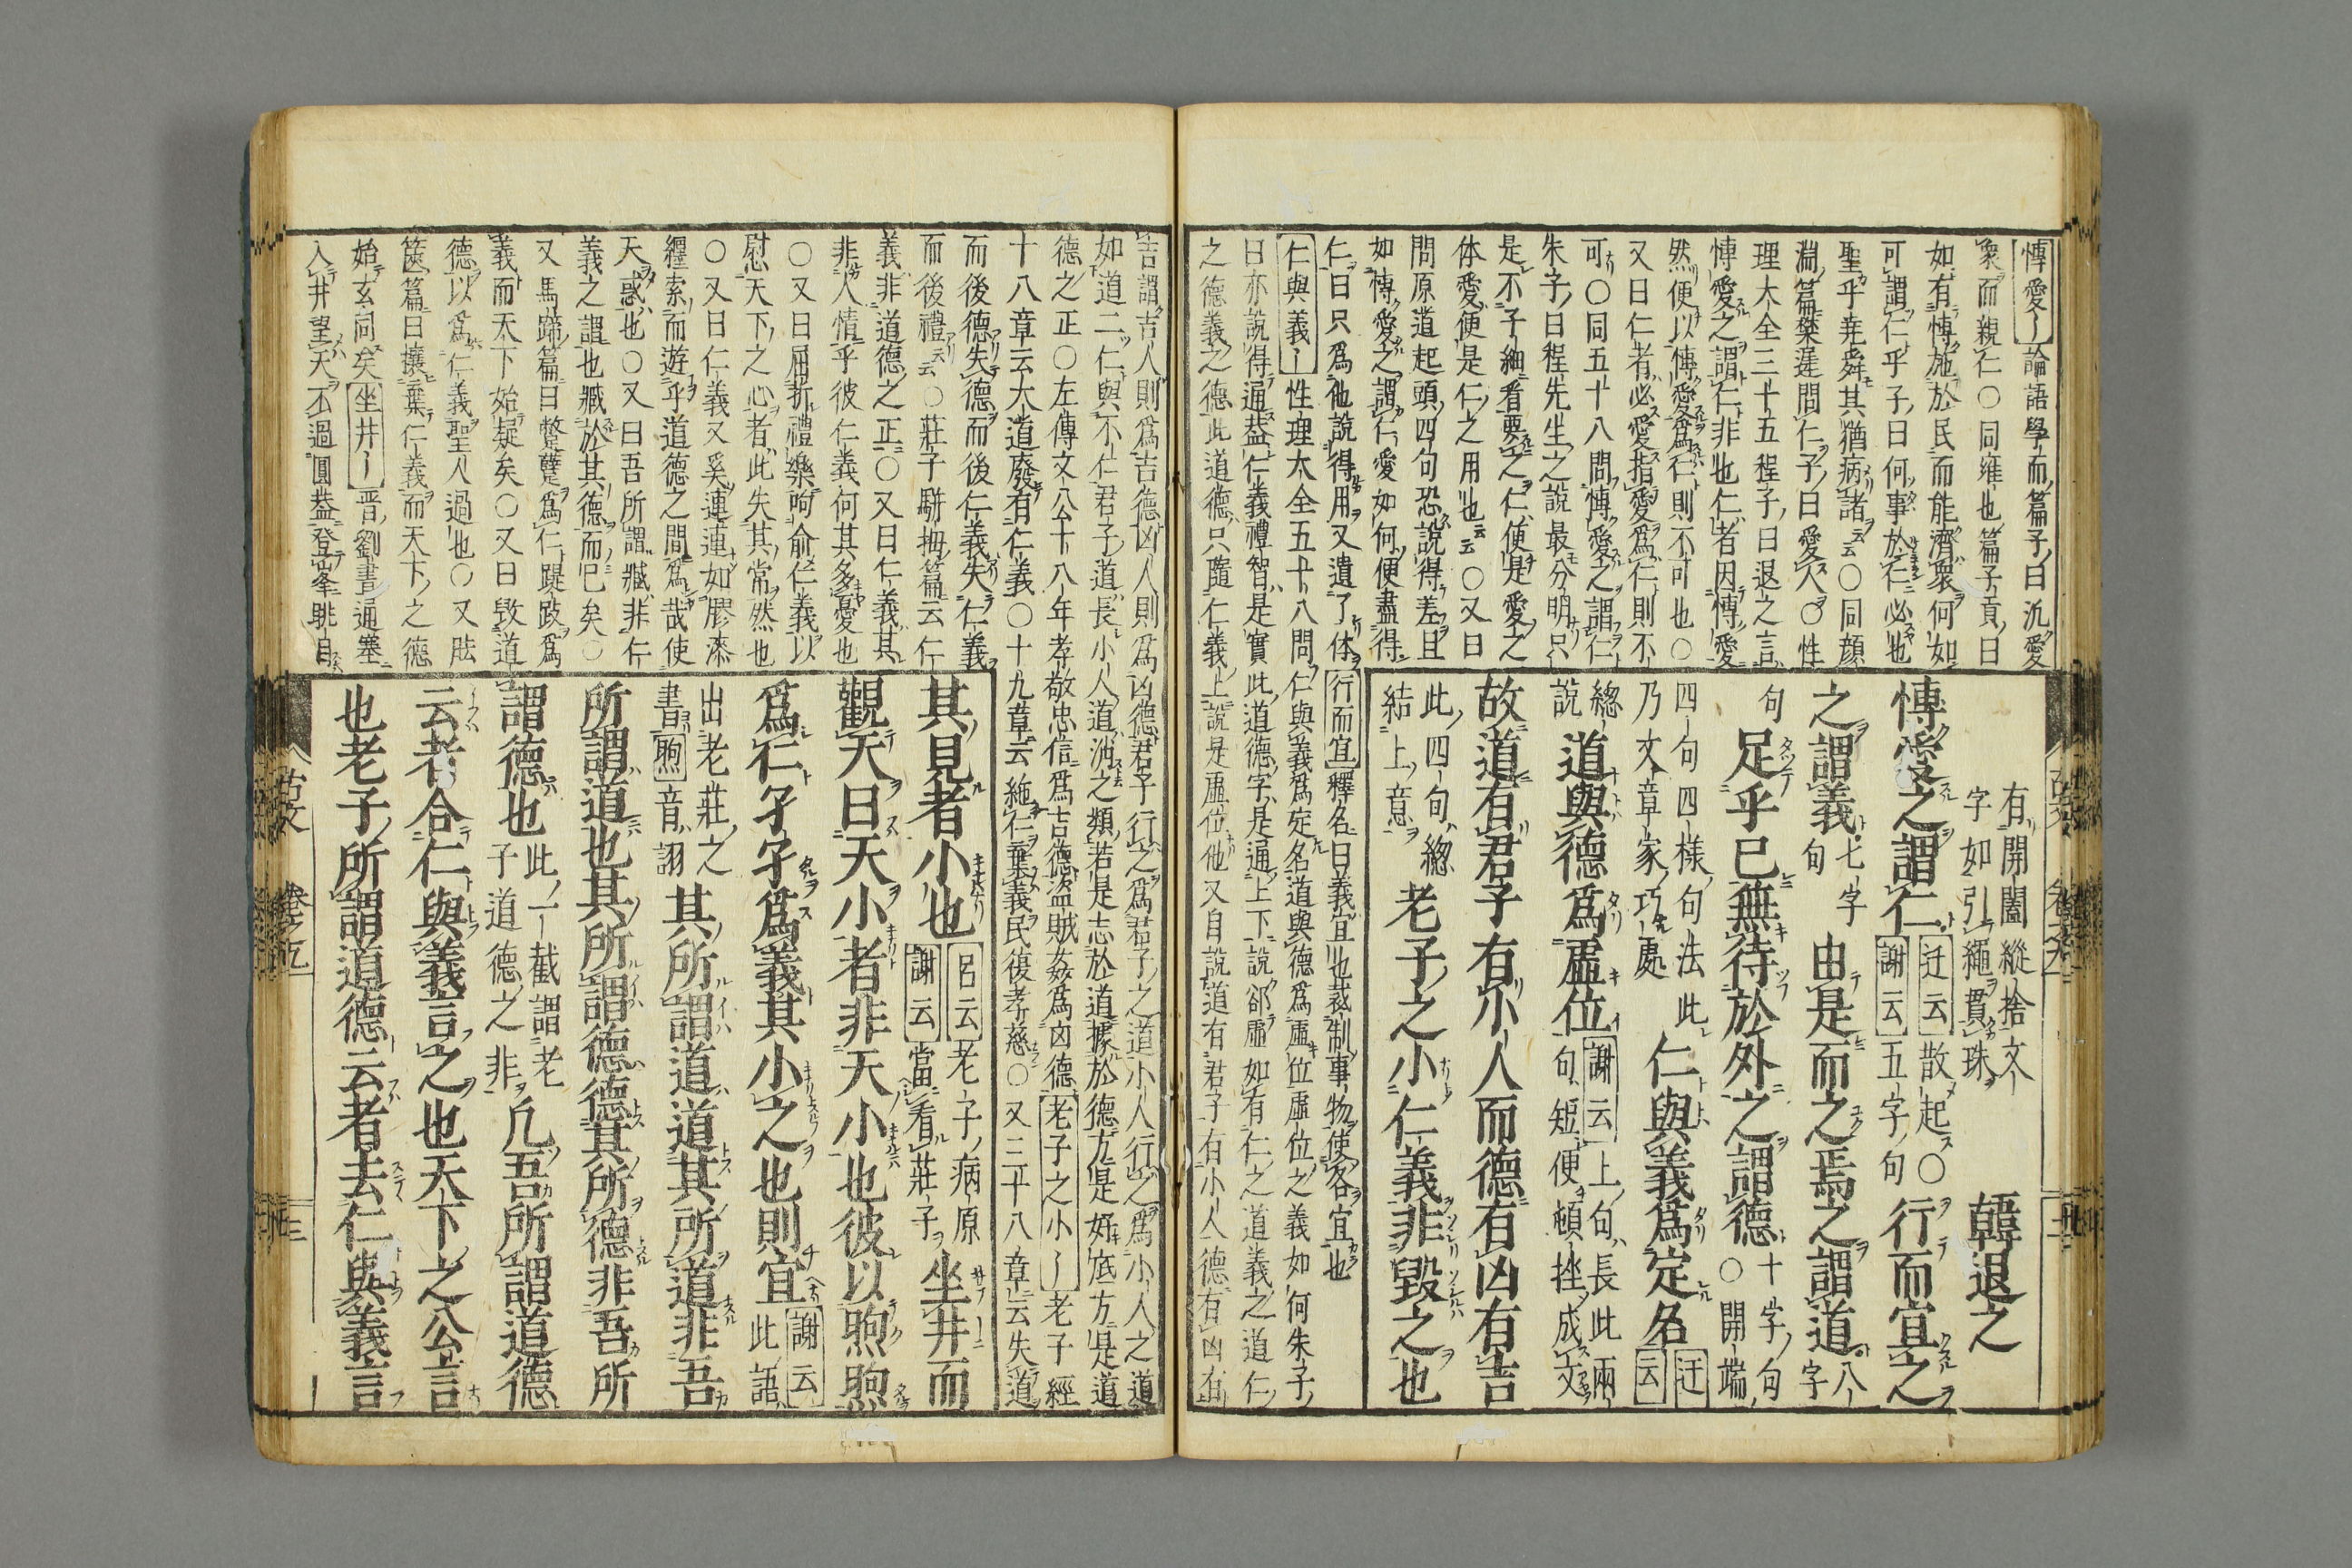 博愛〡論語學而篇子曰汎愛
衆而親仁〇同雍也篇子貢曰
如有博施於民而能濟衆何如
可謂仁乎子曰何事於仁必也
聖乎堯舜其猶病諸云云〇同顔
淵篇樊遲問仁子曰愛人〇性
理大全三十五程子曰退之言
博愛之謂仁非也仁者因博愛
然便以博愛爲仁則不可也〇
又曰仁者必愛指愛爲仁則不
可〇同五十八問博愛之謂仁
朱子曰程先生之說最分明只
是不子細看要之仁便是愛之
体愛便是仁之用也云云〇又曰
問原道起頭四句恐說得差且
如博愛之謂仁愛如何便盡得
仁曰只爲他說得用又遺了体行而宜釋名曰義宜也裁制事物使各宜也
仁與義〡性理大全五十八問仁與義爲定名道與德爲虛位虛位之義如何朱子
曰亦說得通蓋仁義禮智是實此道德字是通上下說卻虛如有仁之道義之道仁
之德義之德此道德只隨仁義上說是虛位他又自說道有君子有小人德有凶有
有開闔縱捨文
字如引繩貫珠
韓退之
博愛之謂仁迂云散起〇謝云五字句行而宜之
之謂義七字句由是而之焉之謂道八字
句足乎已無待於外之謂德十字句〇開端
四句四樣句法此乃文章家巧處仁與義爲定名迂云
總說道與德爲虛位謝云上句長此兩句短便頓挫成文
故道有君子有小人而德有凶有吉
此四句總結上意老子之小仁義非毀之也
吉謂吉人則爲吉德凶人則爲凶德君子行之爲君子之道小人行之爲小人之道
如道二仁與不仁君子道長小人道消之類若是志於道據於德方是好底方是道
德之正〇左傳文公十八年孝敬忠信爲吉德盜賊姦爲凶德老子之小〡老子經
十八章云大道廢有仁義〇十九章云絶仁棄義民復孝慈〇又三十八章云失道
而後德失德而後仁義失仁義
而後禮云云〇莊子駢拇篇云仁
義非道德之正〇又曰仁義其
非人情乎彼仁義何其多憂也
〇又曰屈折禮樂呴俞仁義以
慰天下之心者此失其常然也
〇又曰仁義又奚連連如膠漆
纆索而遊乎道德之間爲哉使
天惑也〇又曰吾所謂臧非仁
義之謂也臧於其德而已矣〇
又馬蹄篇曰蹩躠爲仁踶跂爲
義而天下始疑矣〇又曰毀道
德以爲仁義聖人過也〇又胠
篋篇曰攘棄仁義而天下之德
始玄同矣坐井〡晋劉晝通塞
入井望天不過圓蓋登峯眺目
其見者小也呂云老子病原謝云當看莊子坐井而
觀天曰天小者非天小也彼以煦煦
爲仁孑孑爲義其小之也則宜謝云此語
出老莊之書煦音詡其所謂道道其所道非吾
所謂道也其所謂德德其所德非吾所
謂德也此一截謂老子道德之非凡吾所謂道德
云者合仁與義言之也天下之公言
也老子所謂道德云者去仁與義言
古文
卷之五
三